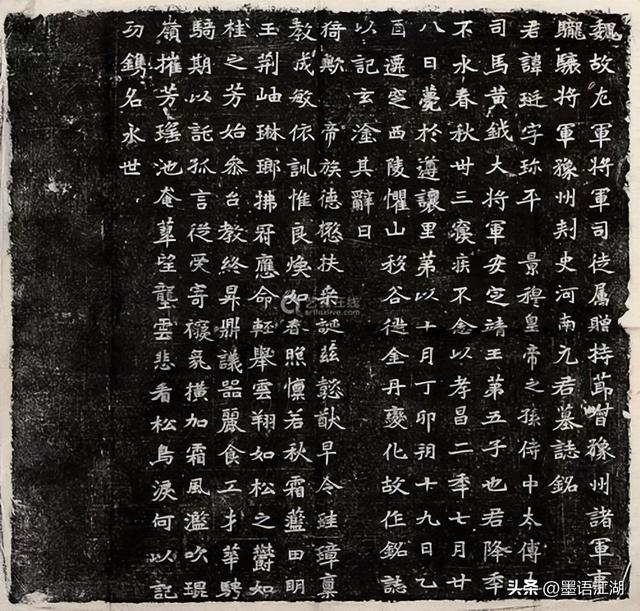 魏故左軍將軍司徒屬贈持節督豫州諸軍事
龍驤將軍豫州刾史河南元君墓誌銘
君諱珽字珎平 景穆皇帝之孫侍中太傅大
司馬黃鉞大將軍安定靖王第五子也君降季
不永春秋卅三寢疾不悆以孝昌二年七月廿
八日薨於遵讓里第以十月丁卯朔十九日乙
酉遷窆西陵懼山移谷徙金丹變化故作銘誌
以記玄塗其辭曰
猗歟 帝族德懋扶桑誕茲懿猷早令珪璋稟
教成敏依訓惟良煥如春照懍若秋霜藍田明
玉荊岫琳瑯拂衿應命輕舉雲翔如松之鬱如
桂之芳始參台教終昇鼎議器麗食工才華騁
驥期以託孤言從受寄氛橫加霜風濫吹琨
嶺摧芳瑤池奄萃望壟雲悲看松鳥淚何以記
功鐫名永世
头条 @墨语江湖